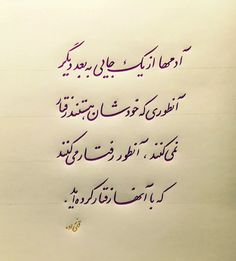 آدمها از یک جایی به بعد دیگر
آنطوری که خودشان هستند رفتار
نمی‌کنند، آنطور رفتار می‌کنند
که با آنها رفتار کرده‌اید.